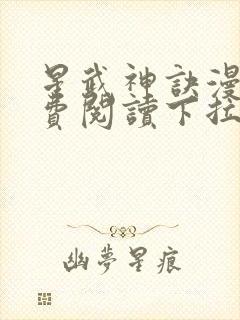 星武神訣漫
費閱讀下拉
幽夢星痕